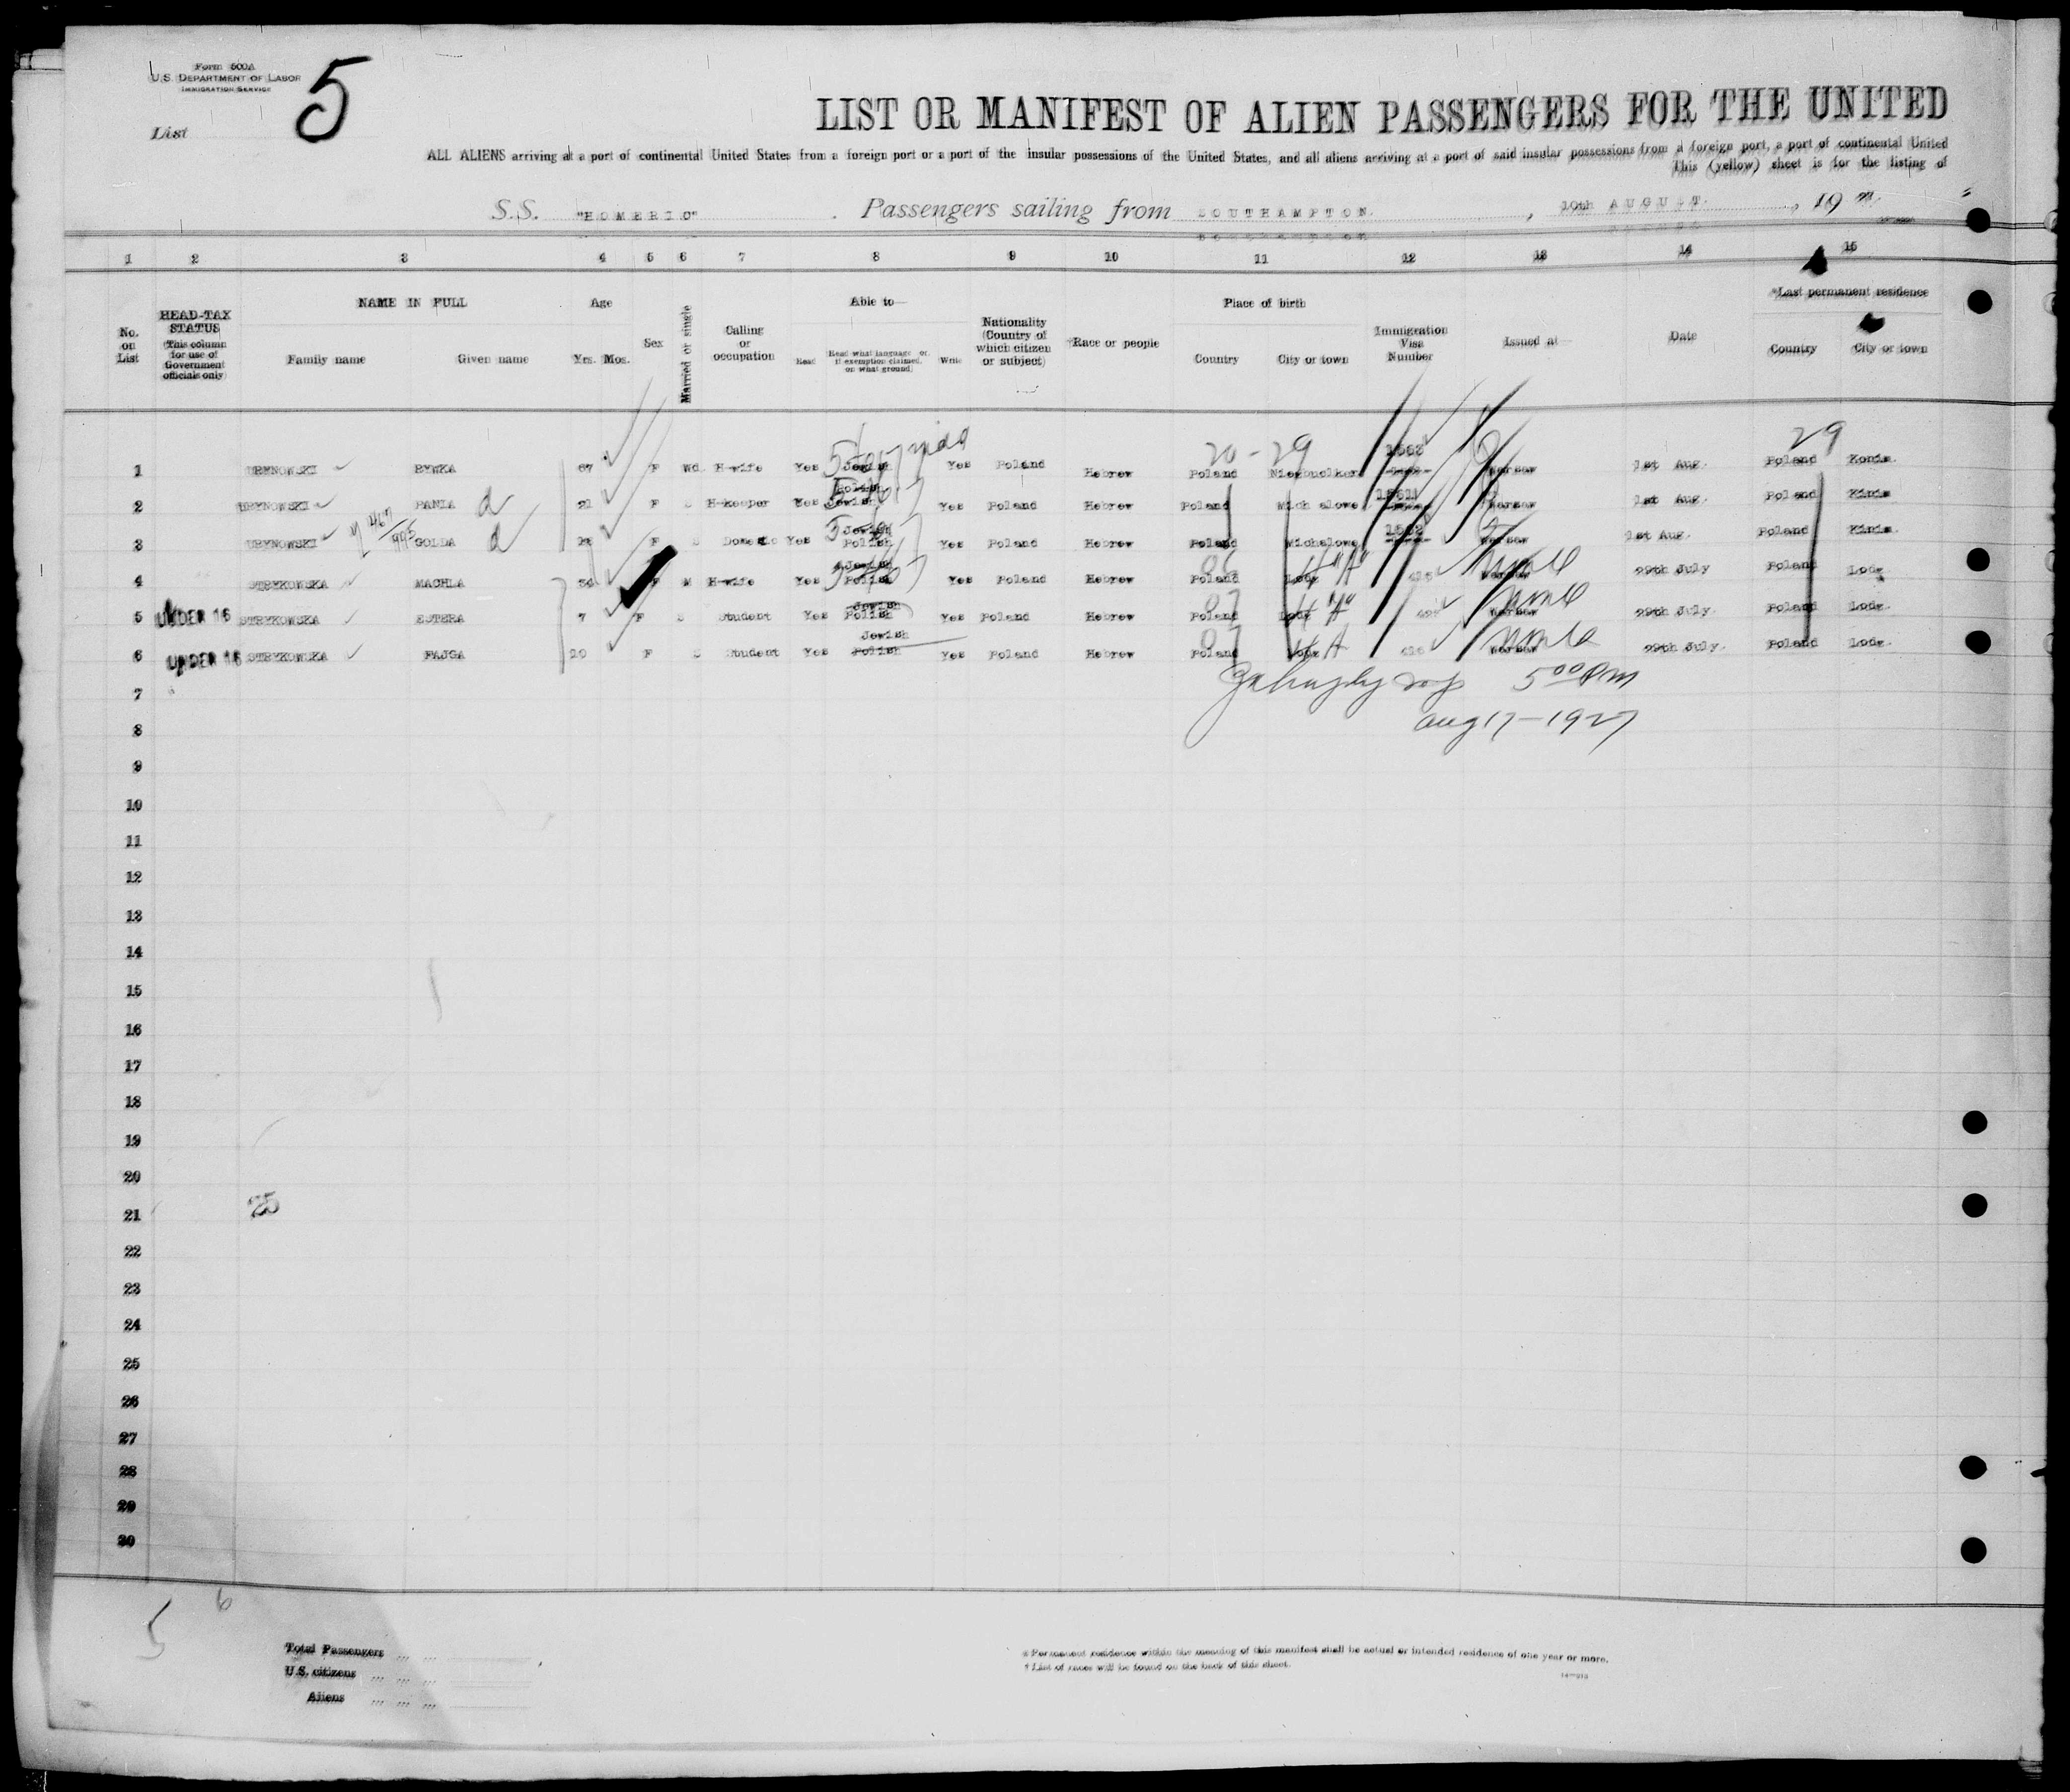 Form 500A
U.S. DEPARTMENT OF LABOR
IMMIGRATION SERVICE
List 5
LIST OR MANIFEST OF ALIEN PASSENGERS FOR THE UNITED
ALL ALIENS arriving at a port of continental United States from a foreign port or a port of the insular possessions of the United States, and all aliens arriving at a port of said insular possessions from a foreign port, a port of continental United
This (yellow) sheet is for the listing of
S.S. "HOMERIC" . Passengers sailing from SOUTHAMPTON. , 10th AUGUST. , 19 27.
1 2 3 4 5 6 7 8 9 10 11 12 13 14 15
No. on List
HEAD-TAX STATUS (This column for use of Government officials only)
NAME IN FULL
Family name Given name
Age
Yrs. Mos.
Sex
Married or single
Calling or occupation
Able to—
Read Read what language or, if exemption claimed, on what ground) Write
Nationality (Country of which citizen or subject)
†Race or people
Place of birth
Country City or town
Immigration Visa Number
Issued at—
Date
*Last permanent residence
Country City or town
29
20 - 29
1 RYWKA 67 F Wd H-wife Yes Jewish Yes Poland Hebrew Poland 1st Aug. Poland
2 21 F S H-keeper Yes Polish Jewish Yes Poland Hebrew Poland Warsaw 1st Aug. Poland
3 GOLDA F S Domestic Yes Jewish Polish Yes Poland Hebrew Poland Michalowe Warsaw 1st Aug. Poland
4 STRYKOWSKA MACHLA F M H-wife Yes Jewish Polish Yes Poland Hebrew Poland Lodz "A" Warsaw 29th July Poland Lodz
5 UNDER 16 STRYKOWSKA ESTERA 7 F S Student Yes Jewish Polish Yes Poland Hebrew Poland Lodz "A" Warsaw 29th July. Poland Lodz.
6 UNDER 16 STRYKOWSKA FAJGA F S Student Yes Jewish Polish Yes Poland Hebrew Poland Lodz A Warsaw 29th July. Poland Lodz.
5 00 PM
7
Aug 17-1927
8
9
10
11
12
13
14
15
16
17
18
19
20
21 25
22
23
24
25
26
27
28
29
30
5 6
Total Passengers ... ...
U.S. citizens ... ... ...
Aliens ... ... ...
* Permanent residence within the meaning of this manifest shall be actual or intended residence of one year or more.
† List of races will be found on the back of this sheet.